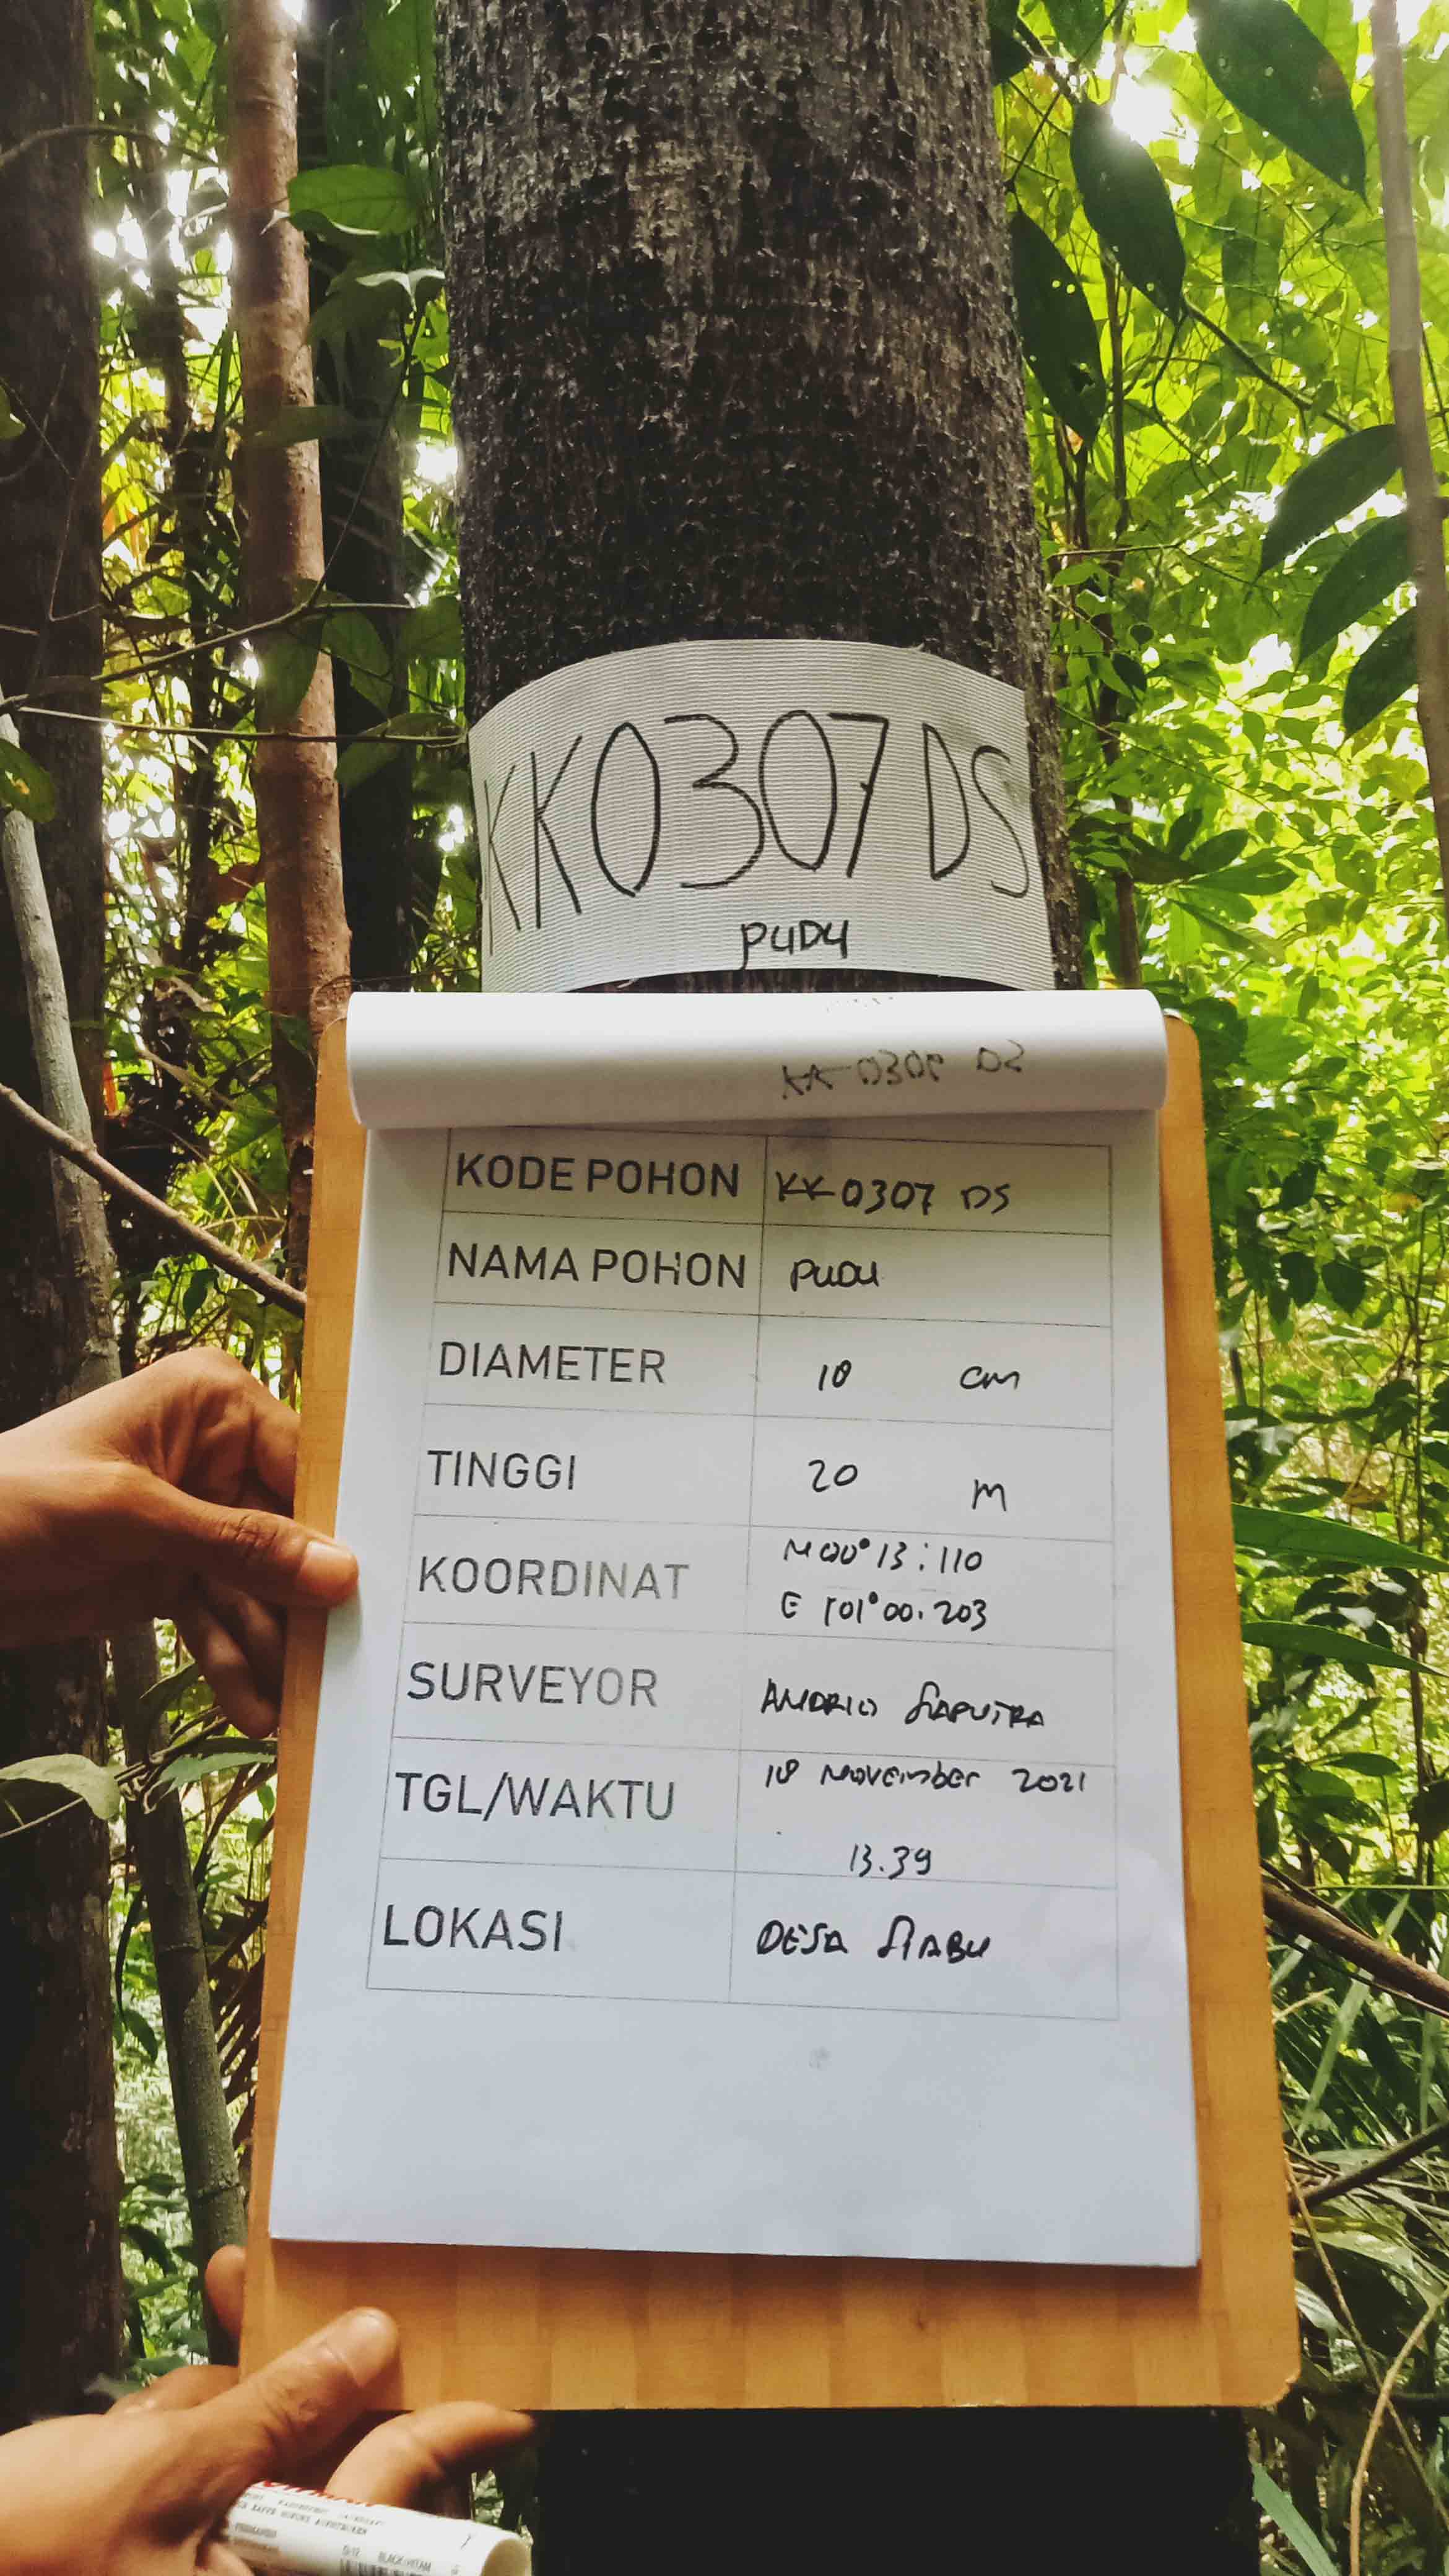 KK0307 DS
PUDU
KODE POHON KK 0307 DS
NAMA POHON PUDU
DIAMETER 18 cm
TINGGI 20 m
KOORDINAT N 00° 13 : 110
E 101° 00. 203
SURVEYOR ANDRIO SAPUTRA
TGL/WAKTU 18 November 2021
13.39
LOKASI DESA SIABU